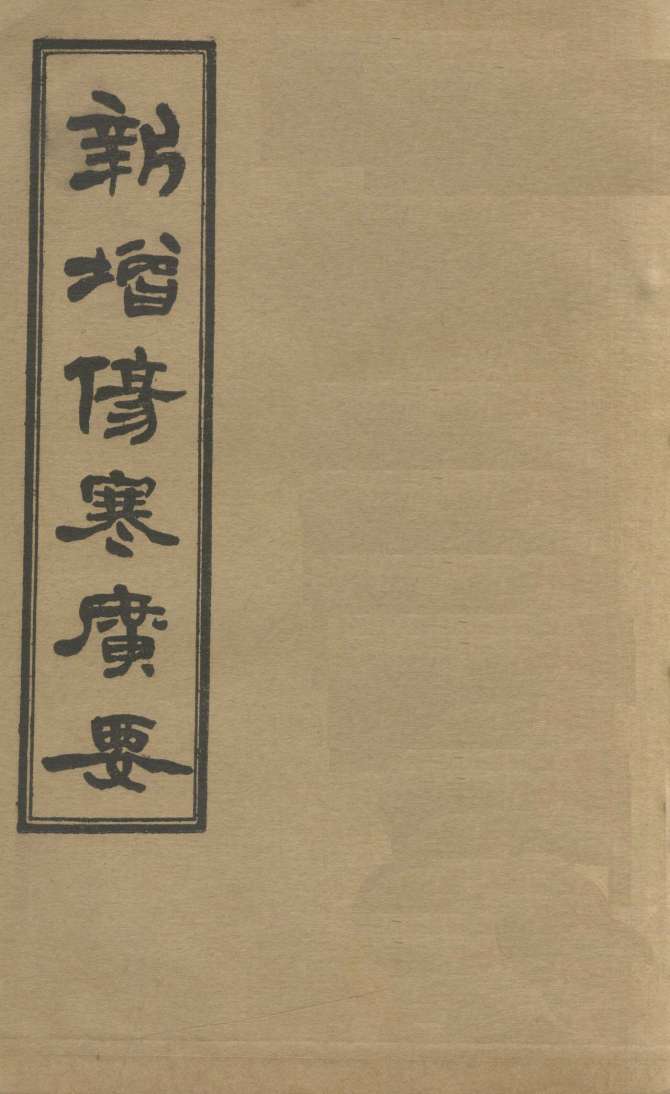 新增傷寒廣要